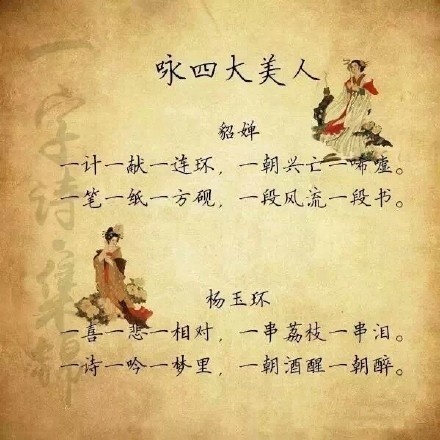 咏四大美人
貂婵
一计一献一连环，一朝兴亡一唏嘘。
一笔一纸一方砚，一段风流一段书。
杨玉环
一喜一悲一相对，一串荔枝一串泪。
一诗一吟一梦里，一朝酒醒一朝醉。
一字诗·集锦